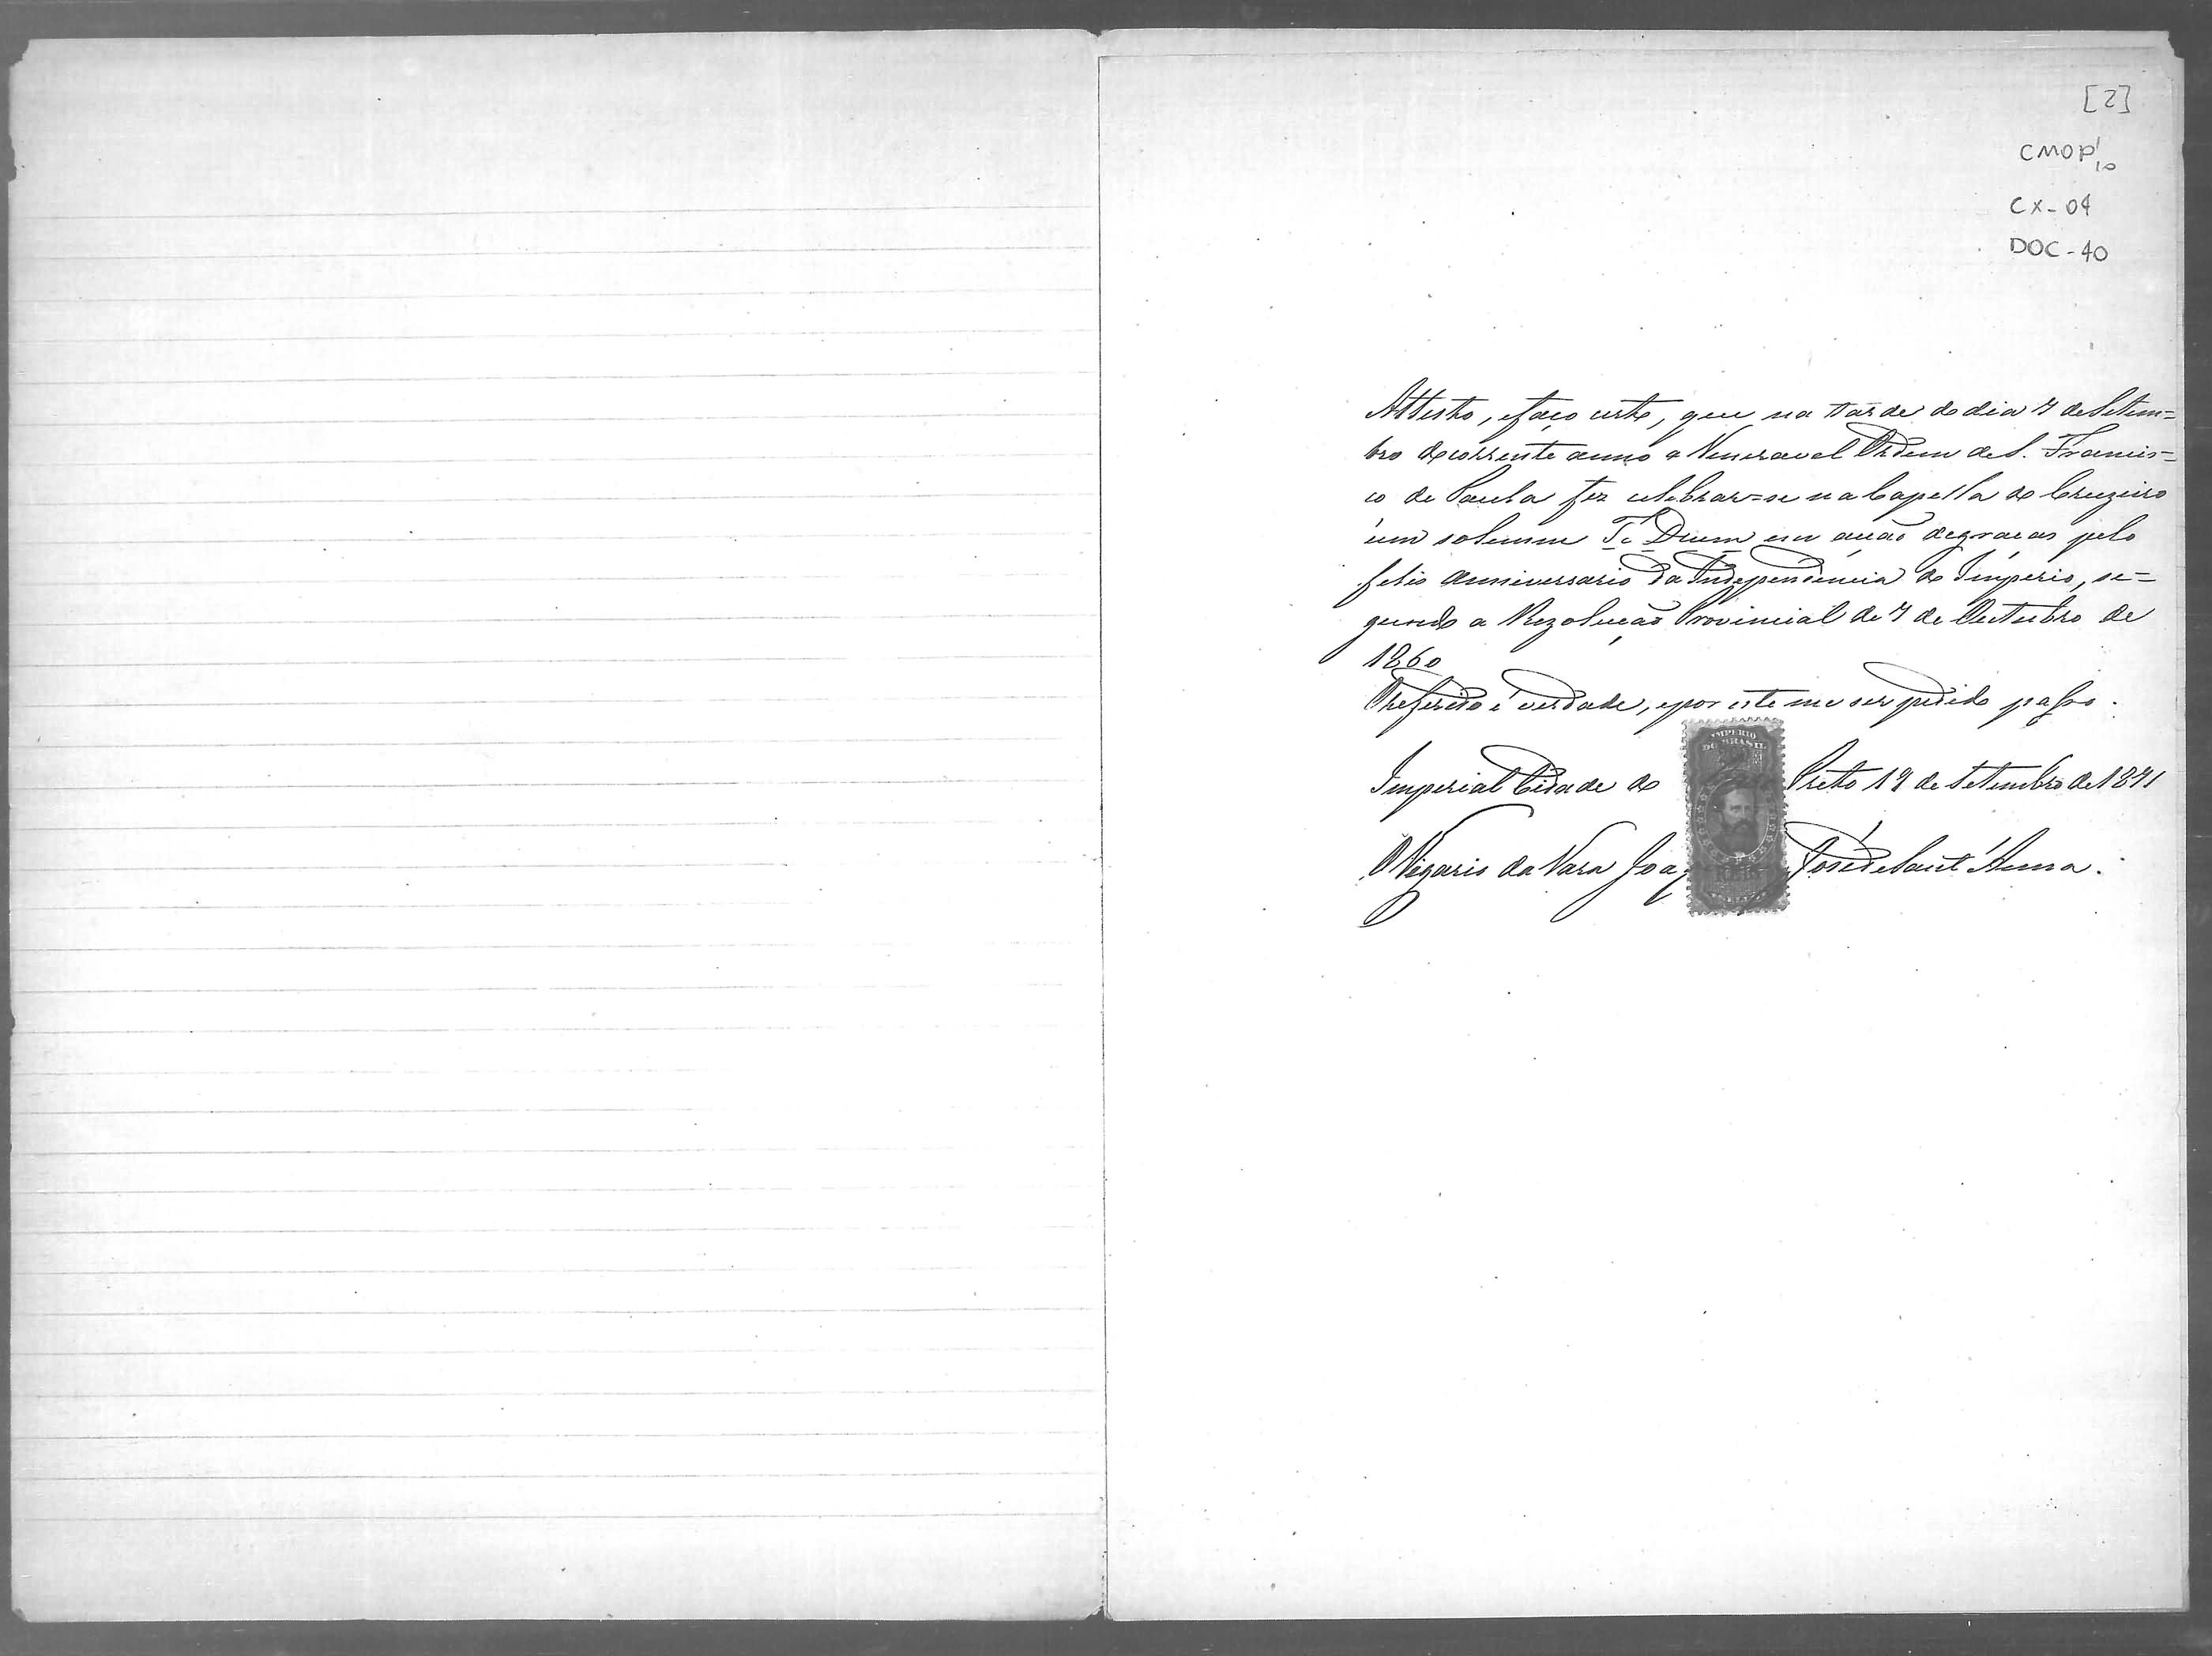 [2]
CMOP 1/10
CX-04
DOC-40
Attesto, e faço certo, que na tarde do dia 7 de Setem=
bro do corrente anno a Veneravel Ordem de S. Francis=
co de Paula fez celebrar=se na Capella do Cruzeiro
um solemne Te Deum em acção de graças pelo
felis anniversario da Independencia do Imperio, se=
gundo a Rezolução Provincial de 7 de Outubro de
1860
O referido é verdade, e por este me ser pedido passo.
IMPERIO
DO BRASIL
Imperial Cidade do Preto 19 de Setembro de 1871
O Vigario da Vara Joaq José de Sant'Anna.